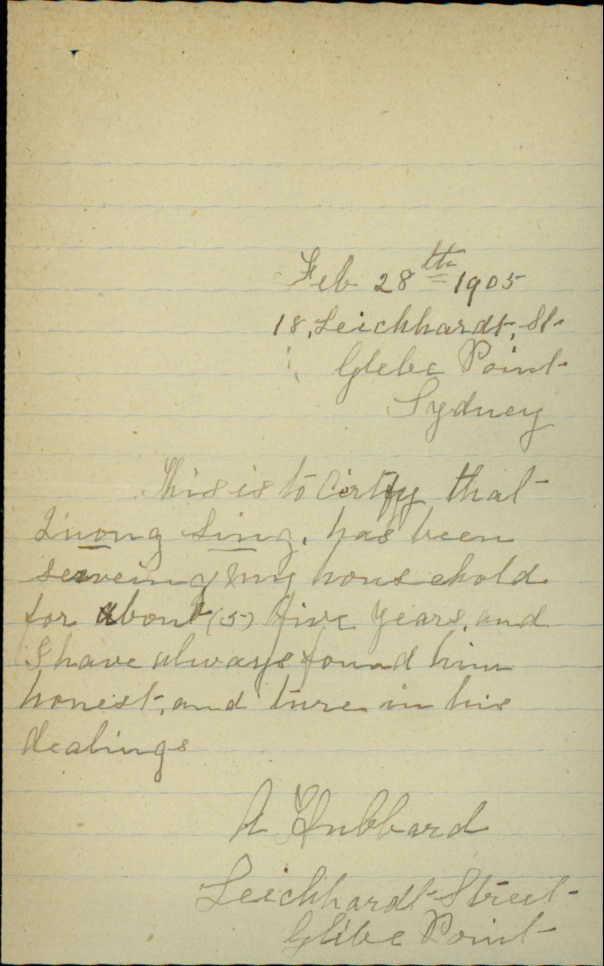 Feb 28th 1905
18, Leichhardt, St
Glebe Point
Sydney
This is to Certify that
Quong Sing, has been
serveing my household
for about (5) five years, and
I have always found him
honest, and ture in his
dealings
A Hubbard
Leichhardt Street
Glibe Point